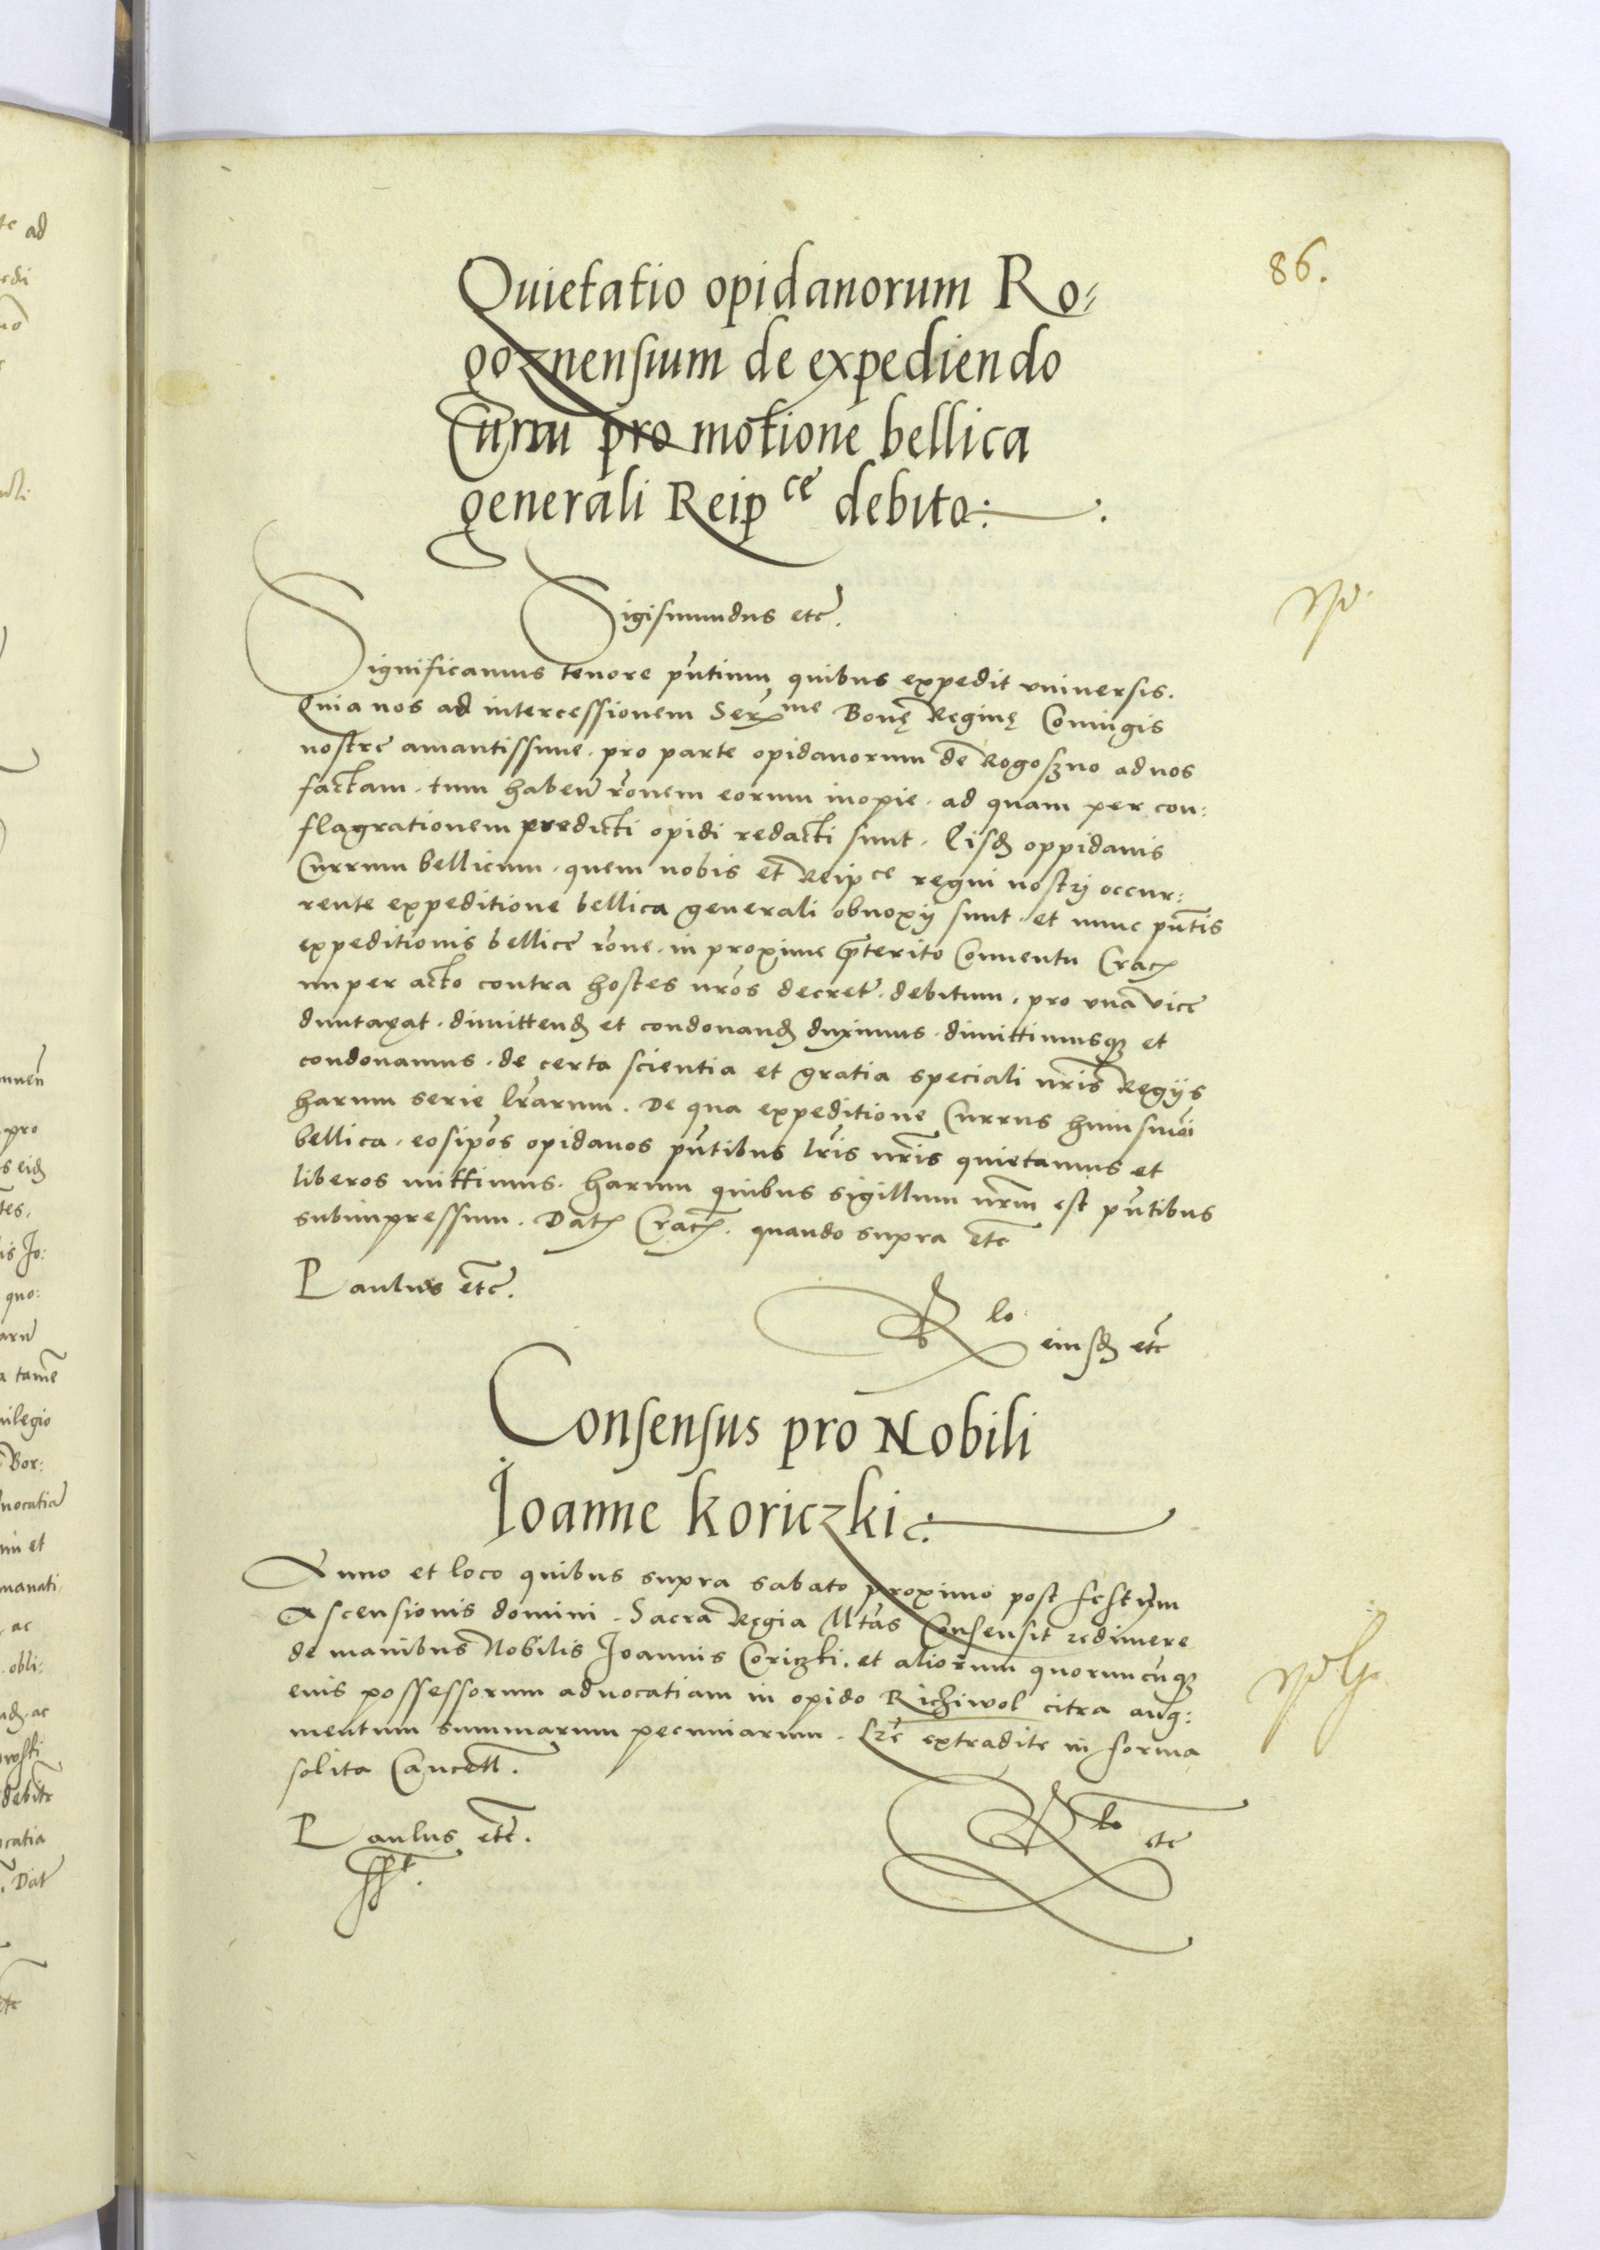 86.
Quietatio opidanorum Ro-
goznensium de expediendo
Curru pro motione bellica
generali Reip ce debito:
Sigismundus etc.
Significamus tenore pñtium quibus expedit vniversis.
Quia nos ad intercessionem Ser me Bonę Reginę Coniugis
nostre amantissime. pro parte opidanorum de Rogoszno ad nos
factam. tum haben rõnem eorum inopie. ad quam per con:
flagrationem predicti opidi redacti sunt. Eisd oppidanis
Currum bellicum. quem nobis et Reip ce regni nostri occur:
rente expeditione bellica generali obnoxij sunt. et nunc pñtis
expeditionis bellice rõne. in proxime preterito Conuentu Crac
nuper acto contra hostes nros decret. debitum. pro vna vice
duntaxat. dimittend et condonand duximus. dimittimusq et
condonamus. de certa scientia et gratia speciali nris Regijs
harum serie lrarum. De qua expeditione Currus huiusmoi
bellica. eosipos opidanos pñtibus lris nris quietamus et
liberos mittimus. harum quibus sigillum nrm est pñtibus
subimpressum. Dat Crac. quando supra etc
Paulus etc.
Rlo
eiusd etc
Consensus pro Nobili
Ioanne Koriczki:
Anno et loco quibus supra sabato proximo post festum
Ascensionis domini. Sacra Regia Mtas Consensit redimere
de manibus Nobilis Joannis Coriczki. et aliorum quorumcunq
eius possessorum aduocatiam in opido Ricziwol citra aug:
mentum summarum pecuniarum. Lre extradite in forma
solita Cancell.
Paulus etc.
sst.
Rlo etc